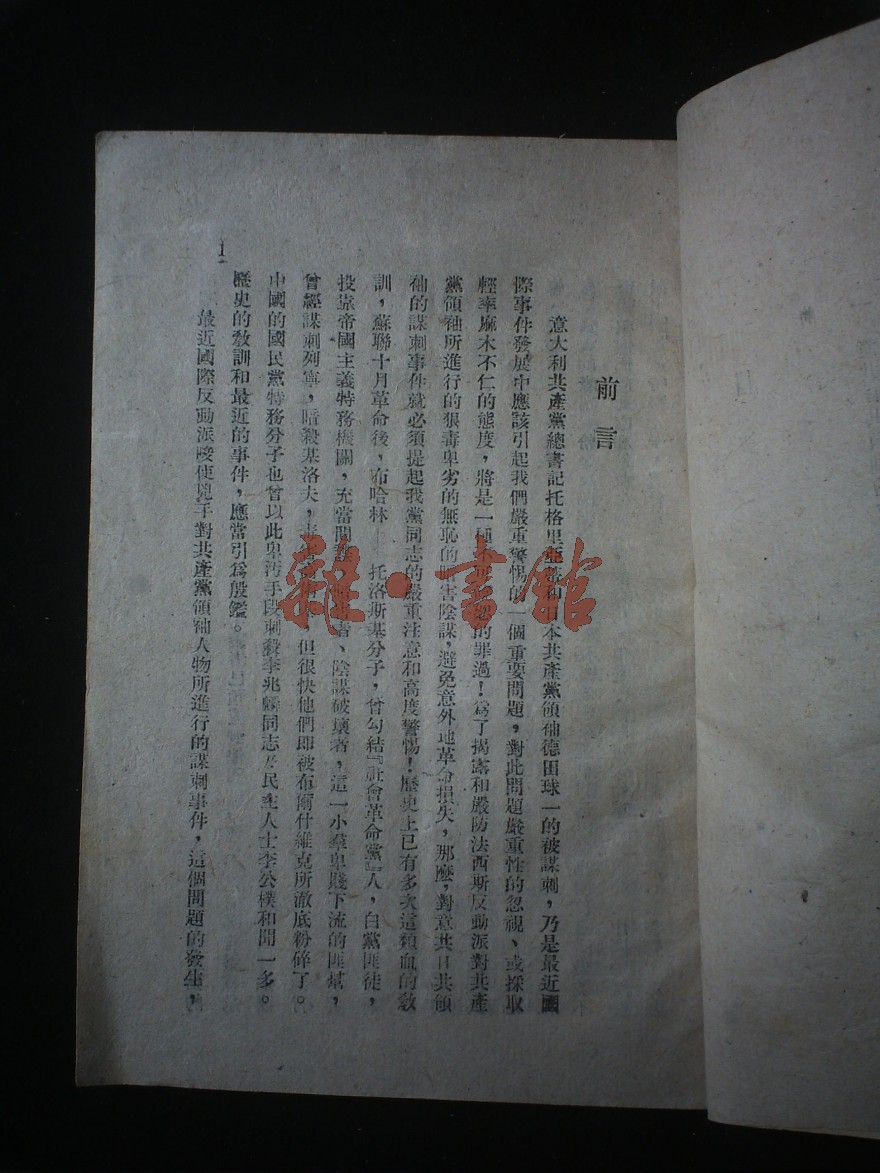 前言
意大利共產黨總書記托格里亞蒂和日本共產黨領袖德田球一的被謀刺，乃是最近國
際事件發展中應該引起我們嚴重警惕的一個重要問題，對此問題嚴重性的忽視、或採取
輕率麻木不仁的態度，將是一種不可的罪過！為了揭露和嚴防法西斯反動派對共產
黨領袖所進行的狠毒卑劣的無恥的暗害陰謀，避免意外地革命損失，那麼，對意共日共領
袖的謀刺事件就必須提起我黨同志的嚴重注意和高度警惕！歷史上已有多次這類血的教
訓，蘇聯十月革命後，布哈林——托洛斯基分子，曾勾結『社會革命黨』人，白黨匪徒，
投靠帝國主義特務機關，充當間諜、暗害者、陰謀破壞者，這一小羣卑賤下流的匪幫，
曾經謀刺列寧，暗殺基洛夫，毒害但很快他們即被布爾什維克所澈底粉碎了。
中國的國民黨特務分子也曾以此卑污手段刺殺李兆麟同志及民主人士李公樸和聞一多。
歷史的教訓和最近的事件，應當引爲殷鑑。
最近國際反動派唆使兇手對共產黨領袖人物所進行的謀刺事件，這個問題的發生，
1
雜·書館